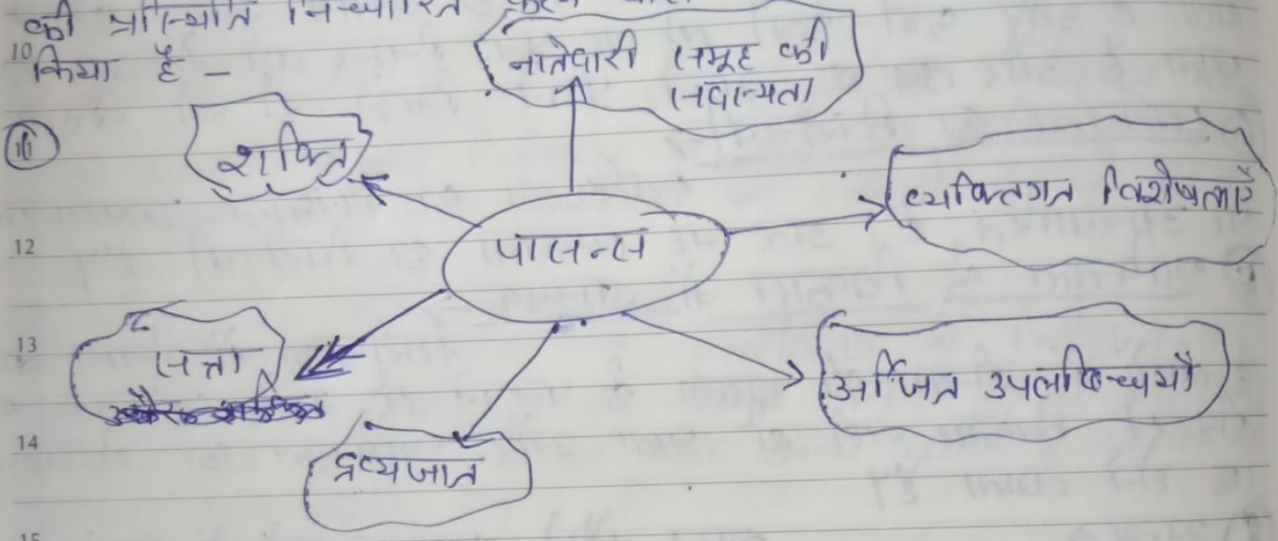 की प्रस्थिति निर्धारित करने
10 किया है –
नातेदारी समूह की
सदस्यता
11
शक्ति
व्यक्तिगत विशेषताएँ
12
पासन्स
13
सत्ता
अर्जित उपलब्धियाँ
14
द्रव्यजात
15